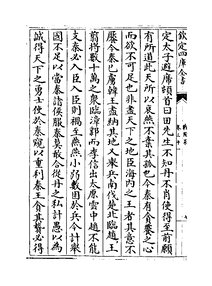 欽定四庫全書
定太子避席頓首曰田先生不知丹不肖使得至前願
有所道此天所以哀燕不棄其孤也今秦有貪饕之心
而欲不可足也非盡天下之地臣海内之王者其意不
饜今秦已虜韓王盡納其地又舉兵南伐楚北臨趙王
翦將數十萬之衆臨漳鄴而李信出太原雲中趙不能
支秦必入臣入臣則禍至燕燕小弱數困於兵今計舉
國不足以當秦諸侯服秦莫敢合從丹之私計愚以為
誠得天下之勇士使於秦窺以重利秦王貪其贄必得